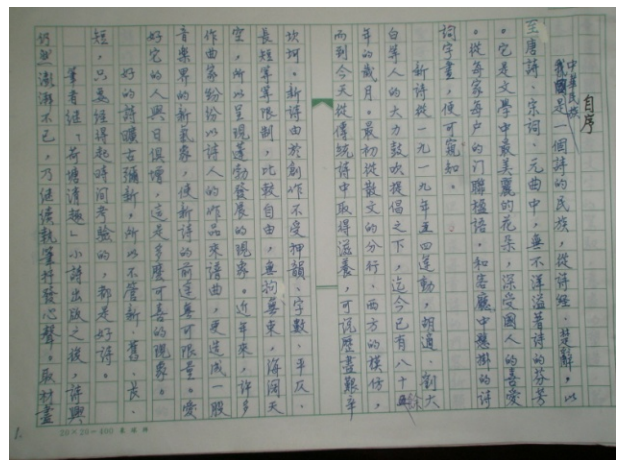 自序
中華民族是一個詩的民族，從詩經、楚辭，以
至唐詩、宋詞、元曲中，無不洋溢著詩的芬芳
。它是文學中最美麗的花朵，深受國人的喜愛
。從每家每户的门聯楹語，和客廳中懸掛的詩
詞字畫，便可窺知。
新詩從一九一九年五四運動，胡適、劉大
白等人的大力鼓吹提倡之下，迄今已有八十餘
年的歲月。最初從散文的分行、西方的模仿，
而到今天從傳統詩中取得滋養，可说歷盡艱辛
坎坷。新詩由於創作不受押韻、字數、平仄、
長短等等限制，比較自由，無拘無束，海闊天
空，所以呈現蓬勃發展的現象。近年來，許多
作曲家紛紛以詩人的作品來譜曲，更造成一股
音樂界的新氣象，使新詩的前途無可限量。愛
好它的人與日俱增，這是多麼可喜的現象。
好的詩曠古彌新，所以不管新、舊、長、
短，只要經得起時間考驗的，都是好詩。
筆者繼「荷塘清趣」小詩出版之後，詩興
仍然澎湃不已，乃繼續執筆抒發心聲。取材盡
1.
20×20=400